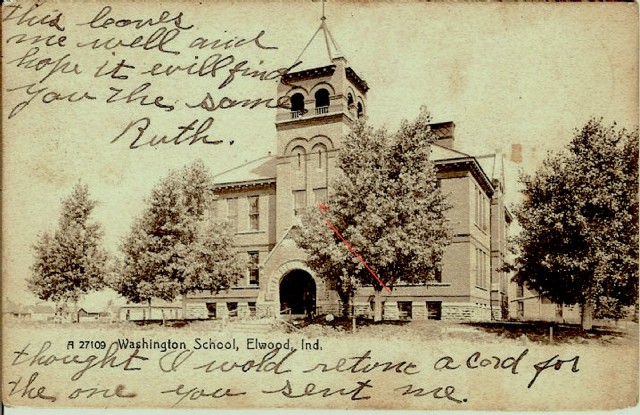 This leaves
me well and
hope it will find
you the same
Ruth.
A 27109 Washington School, Elwood, Ind.
thought I wold retune a cord for
the one you sent me.